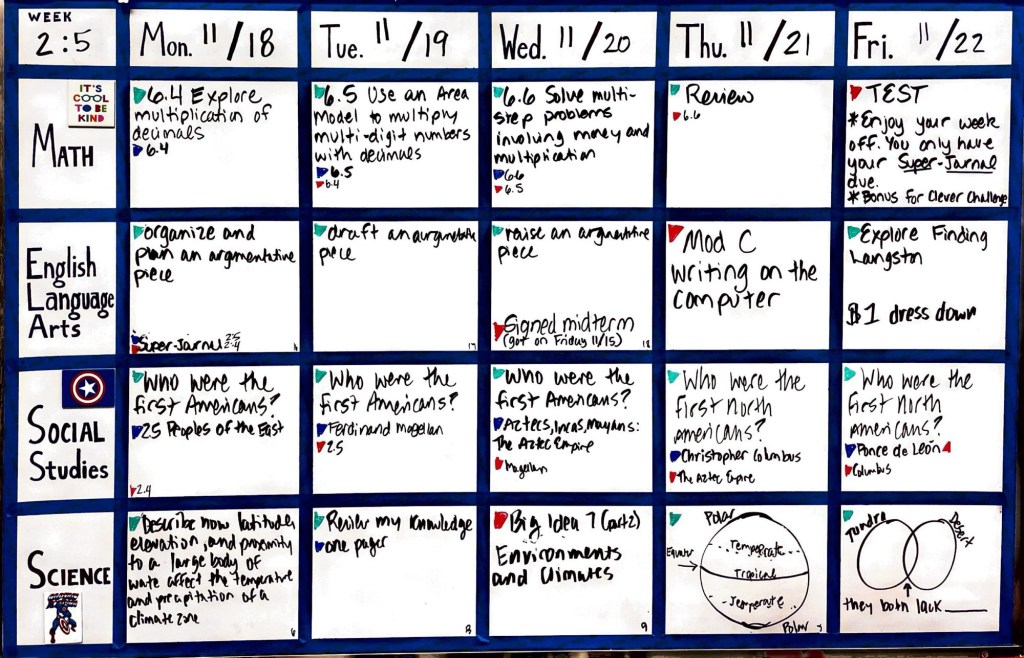 WEEK
2:5
Mon. 11/18
Tue. 11/19
Wed. 11/20
Thu. 11/21
Fri. 11/22
IT'S
COOL
TO BE
KIND
MATH
6.4 Explore
multiplication of
decimals
6.4
6.5 Use an Area
Model to multiply
multi-digit numbers
with decimals
6.5
6.4
6.6 Solve multi-
step problems
involving money and
multiplication
6.6
6.5
Review
6.6
TEST
*Enjoy your week
off. You only have
your Super-Jarnal
due.
*Bonus for Clever Challenge
English
Language
Arts
organize and
plan an argmentative
piece
Super-Jarnal 2:5
2:4
draft an
piece
an argmentative
piece
Signed midterm
(got on Friday 11/15)
18
Mod C
writing on the
computer
Explore Finding
Langston
$1 dress down
SOCIAL
Studies
Who were the
first Americans?
25 Peoples of the East
2.4
Who were the
first Americans?
Ferdinand Magellan
2.5
Who were the
first Americans?
Aztecs, Incas, Mayans:
The Aztec Empire
Magellan
Who were the
first North
Americans?
Christopher Columbus
The Aztec Empire
Who were the
first North
Americans?
Ponce de León
Columbus
SCIENCE
Describe how latitude,
elevation, and proximity
to a large body of
water affect the temperature
and precipitation of a
climate zone
6
Review my knowledge
one pager
8
Big Idea 7 (part 2)
Environments
and Climates
9
Polar
Temperate
Equator
Tropical
Temperate
Polar
Tundra
Desert
they both lack